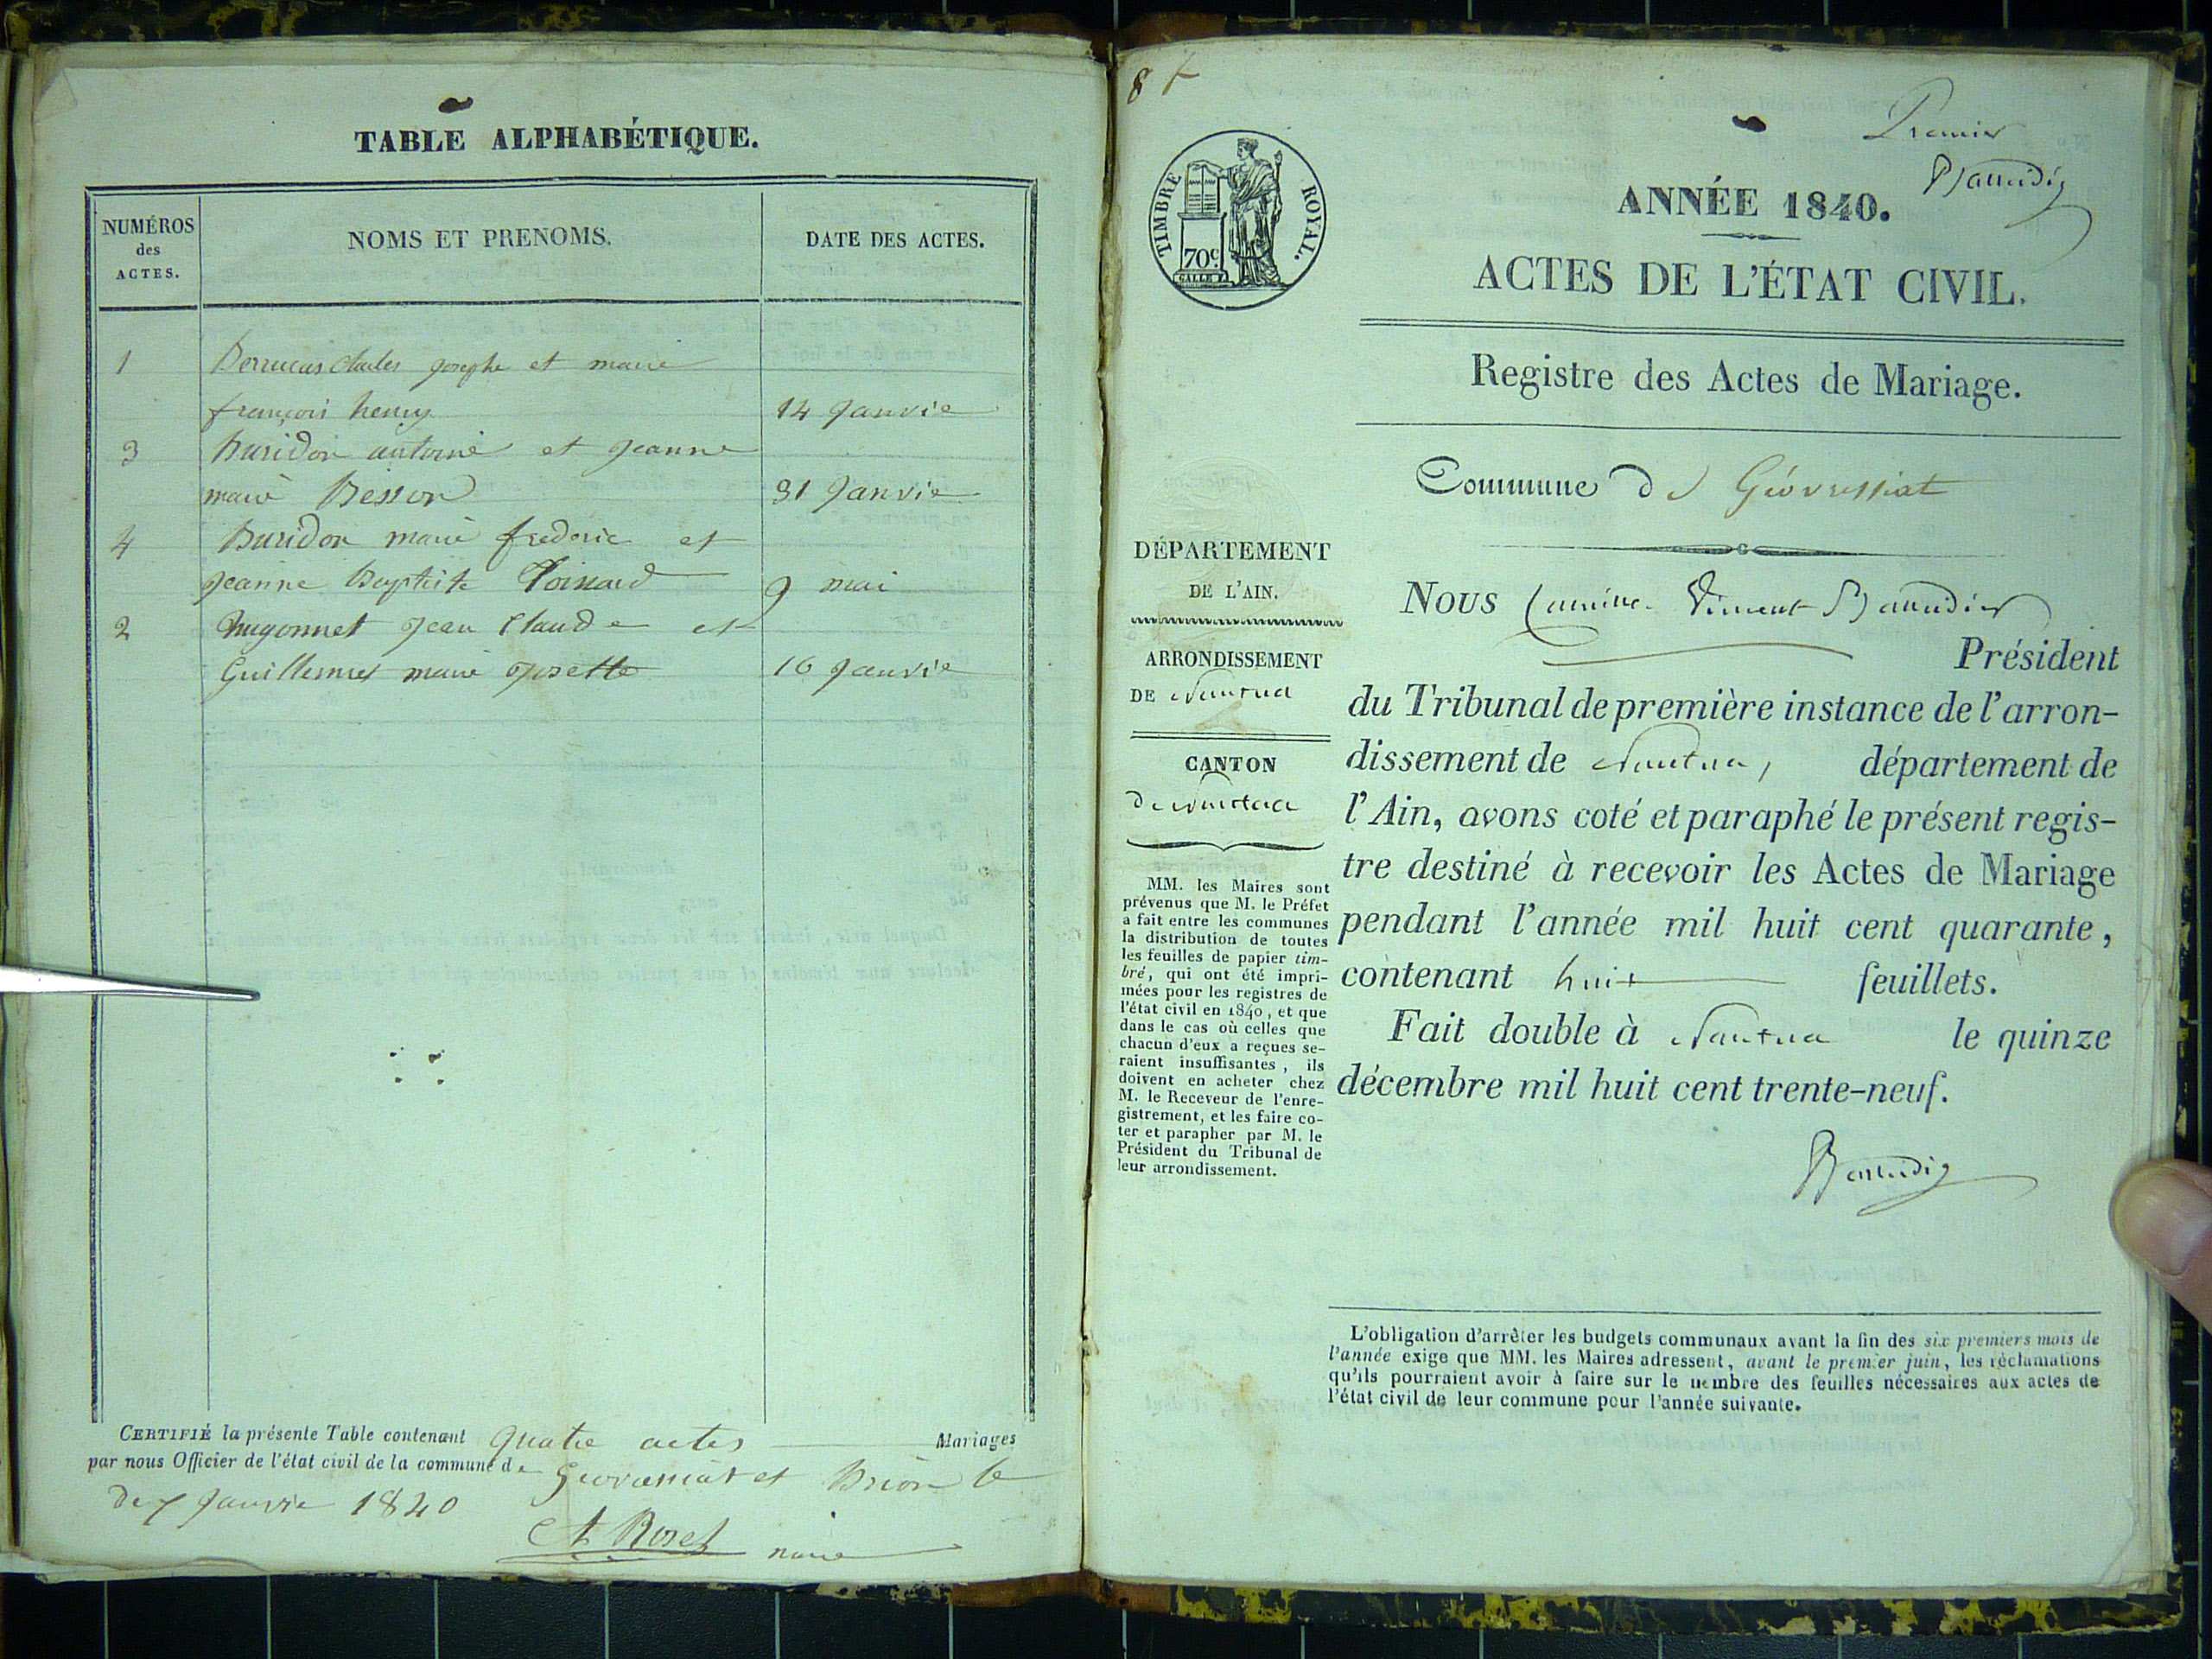 TABLE ALPHABÉTIQUE.
NUMÉROS
des
ACTES.
NOMS ET PRENOMS.
DATE DES ACTES.
1 Charles josephe et marie
françois henry 14 Janvie
3 Buridon antoine et Jeanne
marie Besson 31 Janvie
4 Buridon marie frederic et
Jeanne Baptiste 9 mai
2 hugonnet Jean Claude et
Guillermet marie Josette 16 Janvie
CERTIFIÉ la présente Table contenant quatre actes Mariages
par nous Officier de l'état civil de la commune de Geovressiat et Brion le
Janvie 1840
Rosel
8
Premier
Baudier
TIMBRE ROYAL.
70c.
ANNÉE 1840.
ACTES DE L'ÉTAT CIVIL.
Registre des Actes de Mariage.
Commune de Géovressiat
DÉPARTEMENT
DE L'AIN.
ARRONDISSEMENT
DE Nantua
CANTON
de Nantua
MM. les Maires sont
prévenus que M. le Préfet
a fait entre les communes
la distribution de toutes
les feuilles de papier tim-
bré, qui ont été impri-
mées pour les registres de
l'état civil en 1840, et que
dans le cas où celles que
chacun d'eux a reçues se-
raient insuffisantes, ils
doivent en acheter chez
M. le Receveur de l'enre-
gistrement, et les faire co-
ter et parapher par M. le
Président du Tribunal de
leur arrondissement.
Nous Vincent
Président
du Tribunal de première instance de l'arron-
dissement de Nantua, département de
l'Ain, avons coté et paraphé le présent regis-
tre destiné à recevoir les Actes de Mariage
pendant l'année mil huit cent quarante,
contenant huit feuillets.
Fait double à Nantua le quinze
décembre mil huit cent trente-neuf.
L'obligation d'arrêter les budgets communaux avant la fin des six premiers mois de
l'année exige que MM. les Maires adressent, avant le premier juin, les réclamations
qu'ils pourraient avoir à faire sur le nombre des feuilles nécessaires aux actes de
l'état civil de leur commune pour l'année suivante.